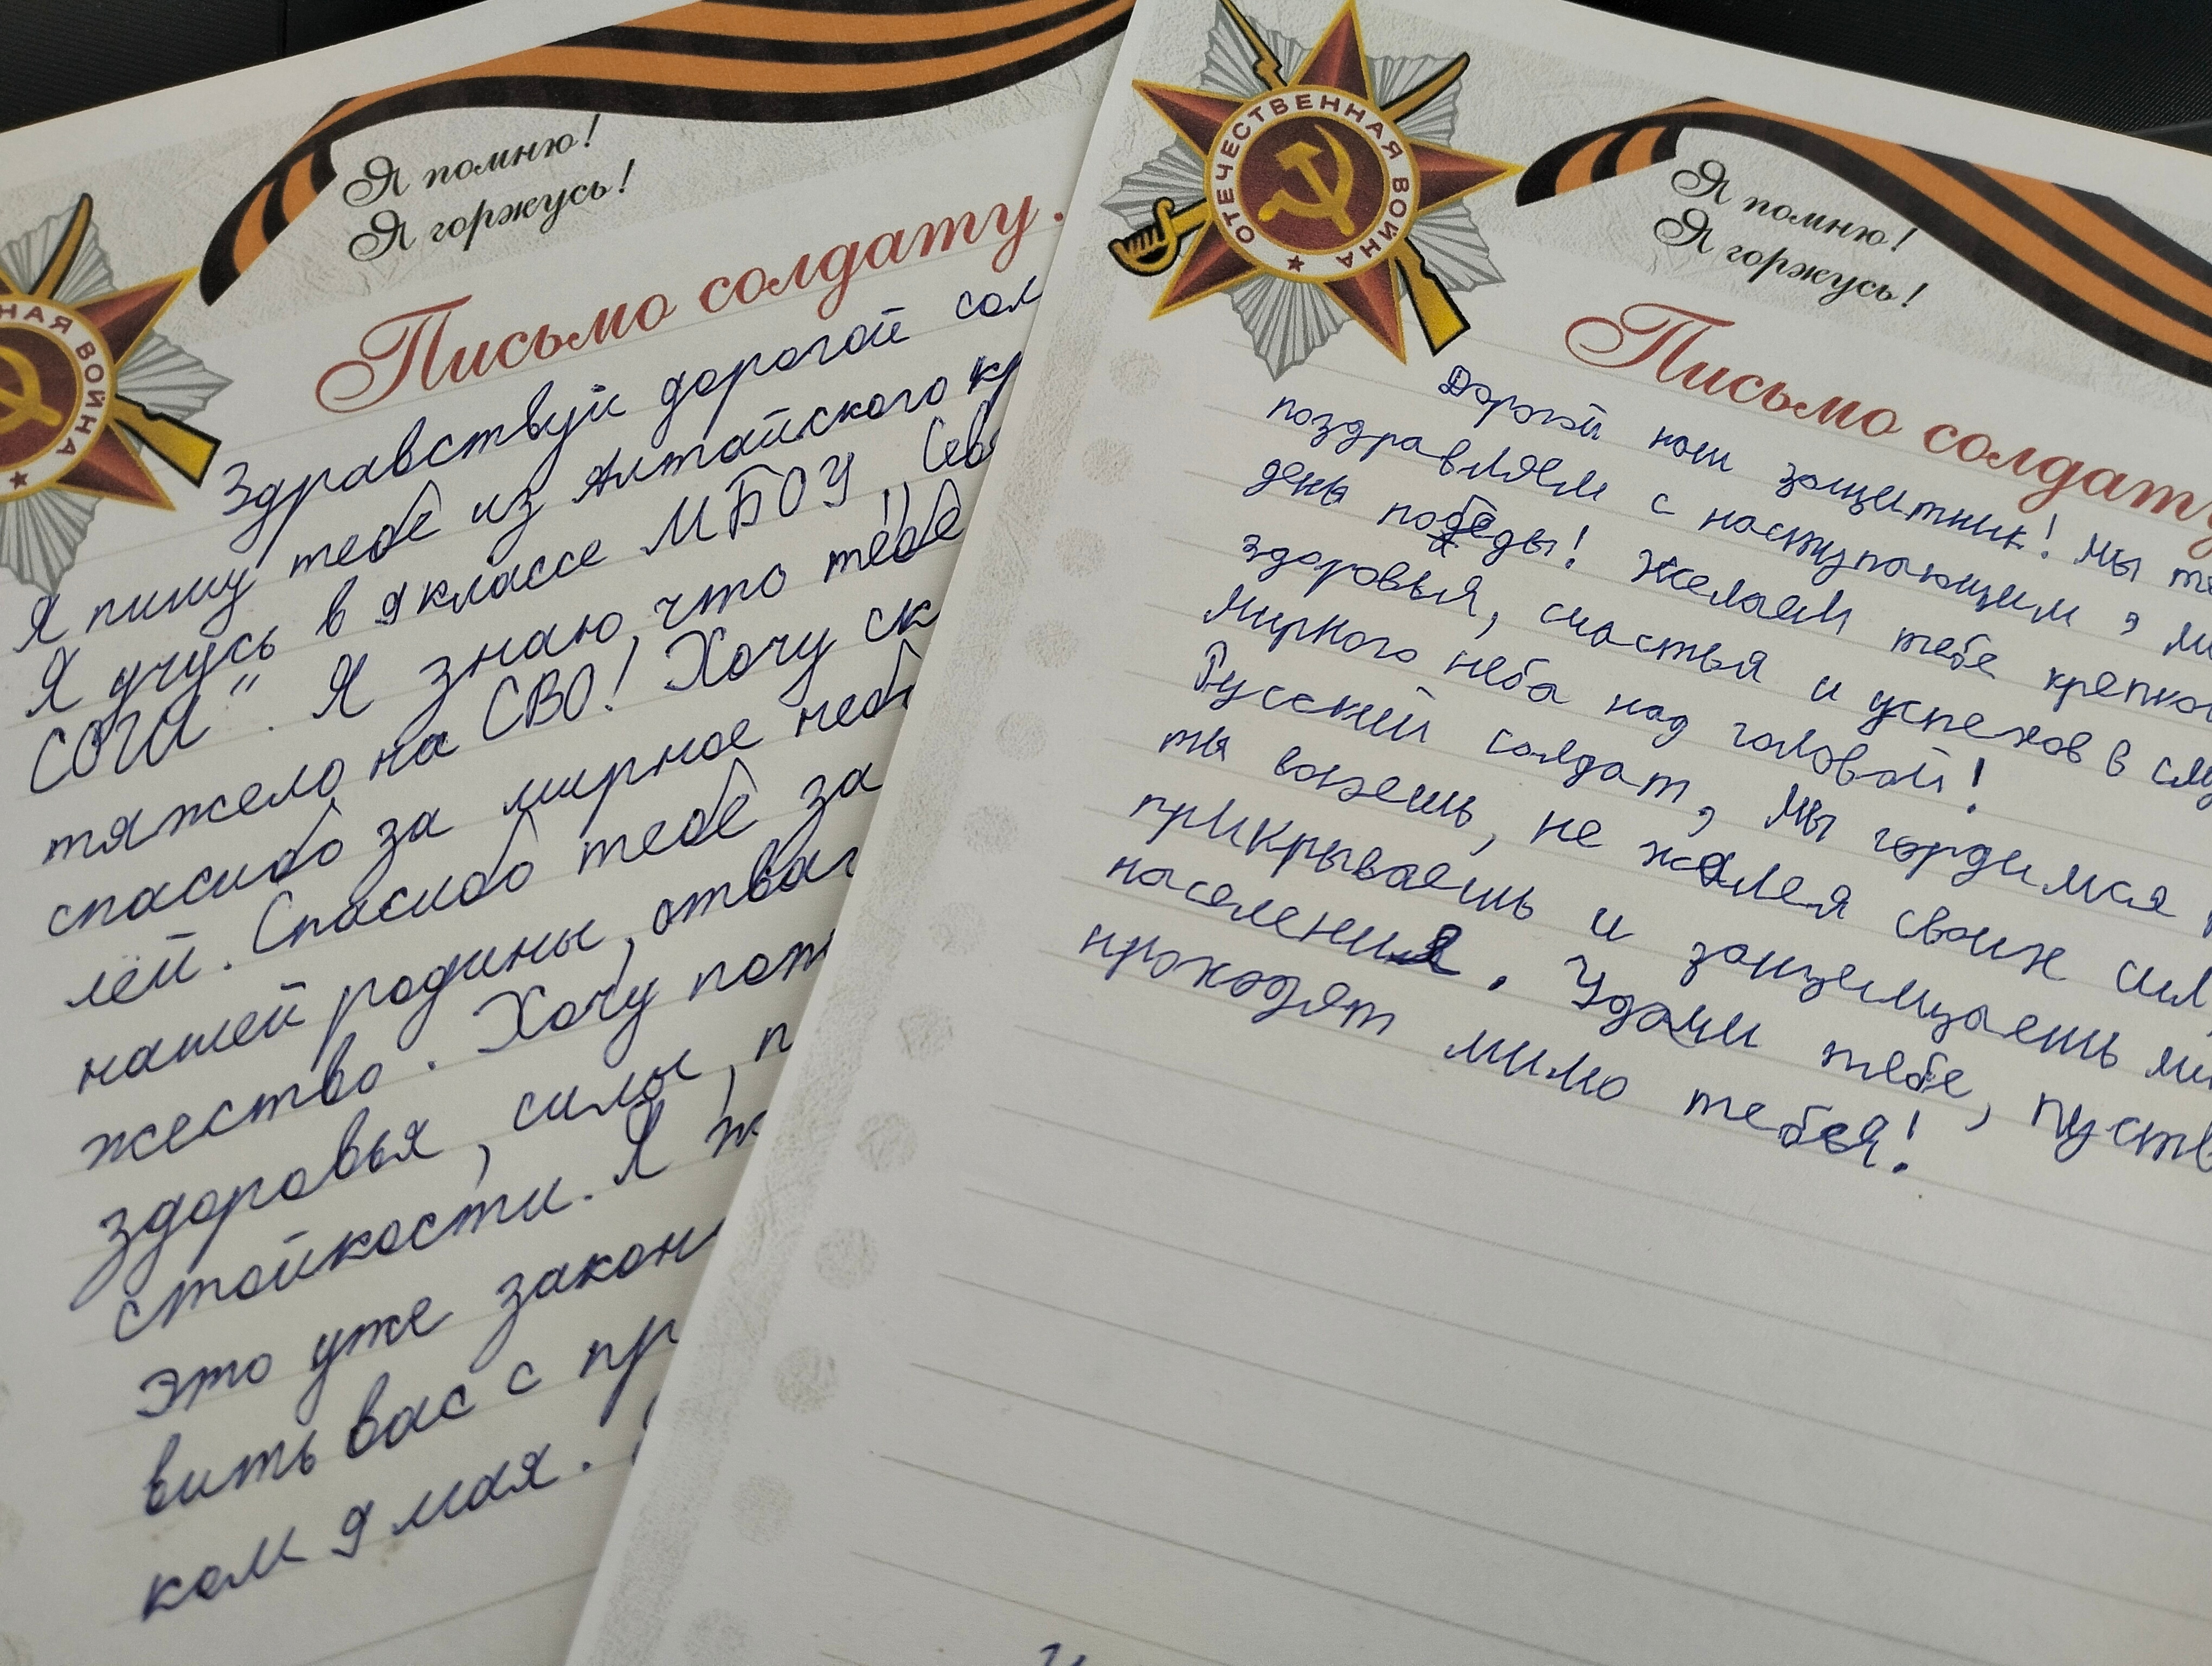 Я помню!
Я горжусь!
НАЯ ВОЙНА
Письмо солдату.
Здравствуй дорогой сол
Я пишу тебе из Алтайского кр
Я учусь в 9 классе МБОУ „Сев
СОГЛ". Я знаю, что тебе
тяжело на СВО! Хочу ск
спасибо за мирное небо
лей. Спасибо тебе за
нашей родины, отваг
жество. Хочу пож
здоровья, силы, п
стойкости. Я ж
это уже закон
вить вас с пр
ком 9 мая.
ОТЕЧЕСТВЕННАЯ ВОЙНА
Я помню!
Я горжусь!
Письмо солдату
Дорогой наш защитник! Мы те
поздравляем с наступающим, м
день победы! Желаем тебе крепко
здоровья, счастья и успехов в слу
мирного неба над головой!
Русский солдат, мы гордимся
ты воюешь, не жалея своих сил
прикрываешь и защемщаешь ми
населения. Удачи тебе, пусть
проходят мимо тебья!